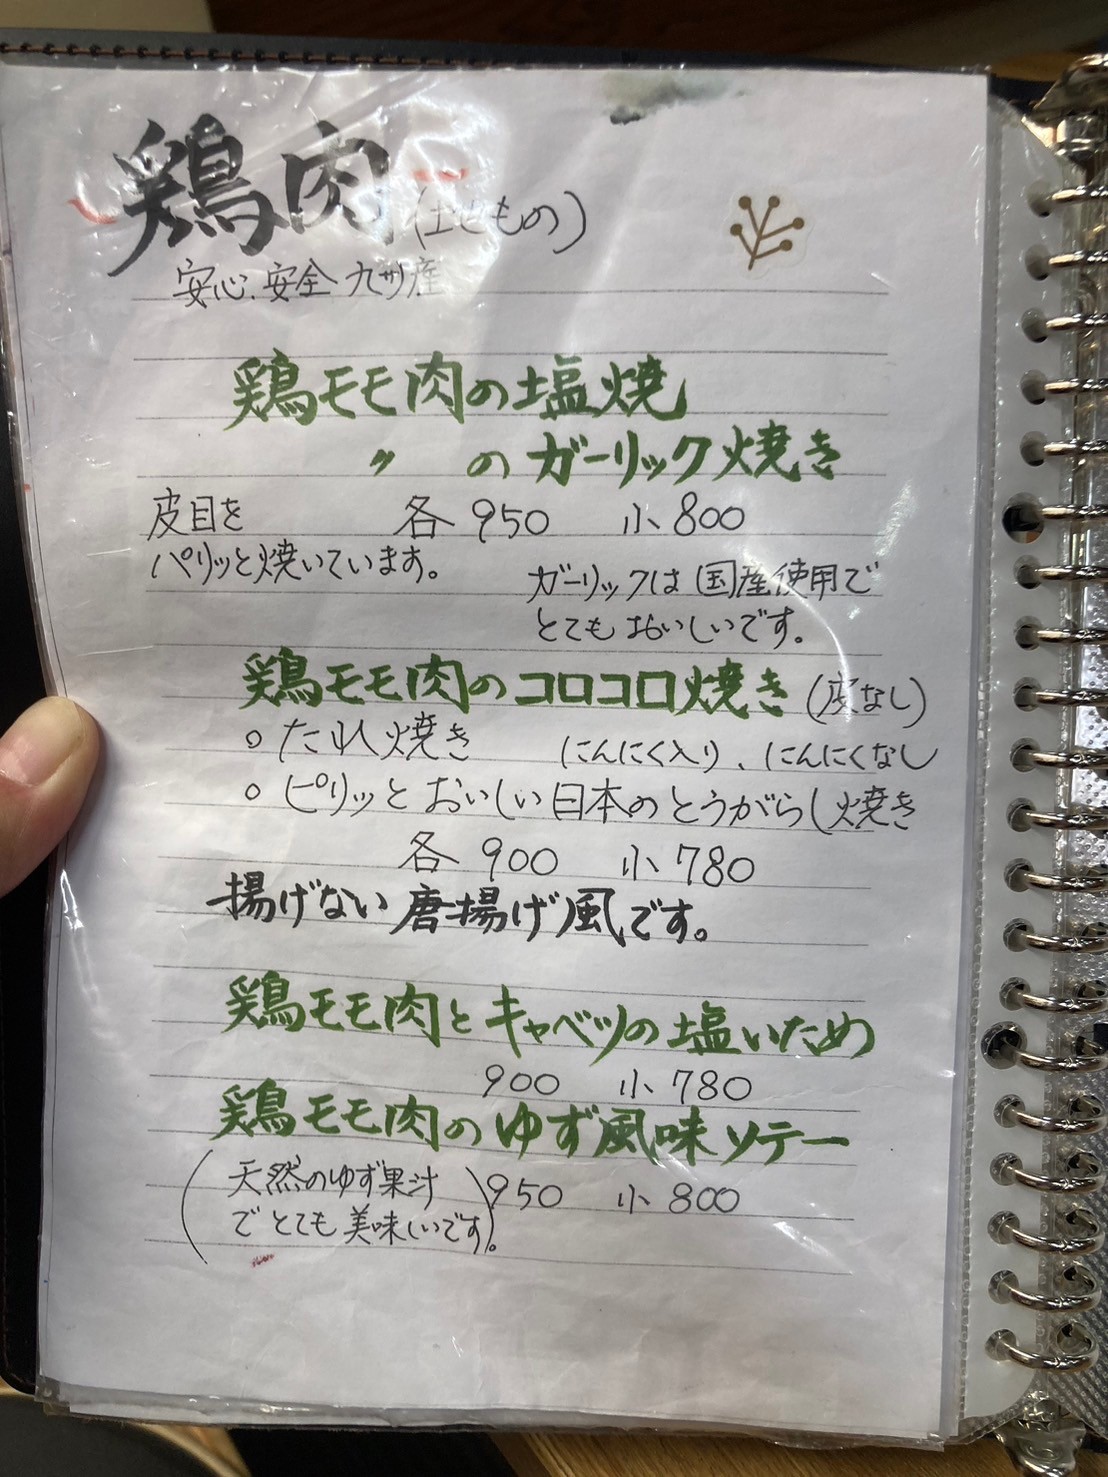 鶏肉(地もの)
安心、安全 九州産
鶏モモ肉の塩焼
〃 のガーリック焼き
皮目を 各 950 小 800
パリッと焼いています。
ガーリックは国産使用で
とてもおいしいです。
鶏モモ肉のコロコロ焼き(皮なし)
○ たれ焼き にんにく入り、にんにくなし
○ ピリッとおいしい日本のとうがらし焼き
各 900 小 780
揚げない唐揚げ風です。
鶏モモ肉とキャベツの塩いため
900 小 780
鶏モモ肉のゆず風味ソテー
(天然のゆず果汁 950 小 800
でとても美味しいです。)